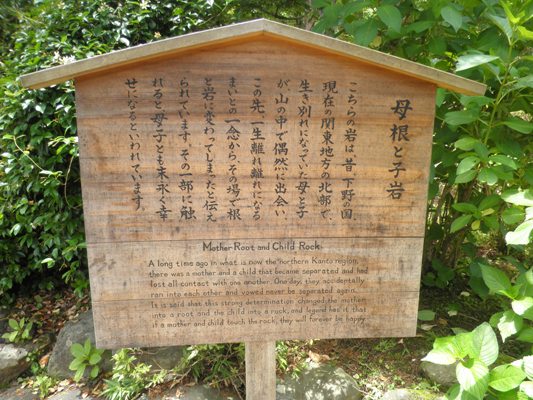 母根と子岩
こちらの岩は昔、下野の国、
現在の関東地方の北部で、
生き別れになっていた母と子
が、山の中で偶然に出会い、
この先、一生離れ離れになる
まいとの一念から、その場で根
と岩に変わってしまったと伝え
られています。その一部に触
れると母子とも末永く幸
せになるといわれています。
Mother Root and Child Rock
A long time ago in what is now the northern Kanto region,
there was a mother and a child that became separated and had
lost all contact with one another. One day, they accidentally
ran into each other and vowed never be separated again.
It is said that this strong determination changed the mother
into a root and the child into a rock, and legend has it that
if a mother and child touch the rock, they will forever be happy.